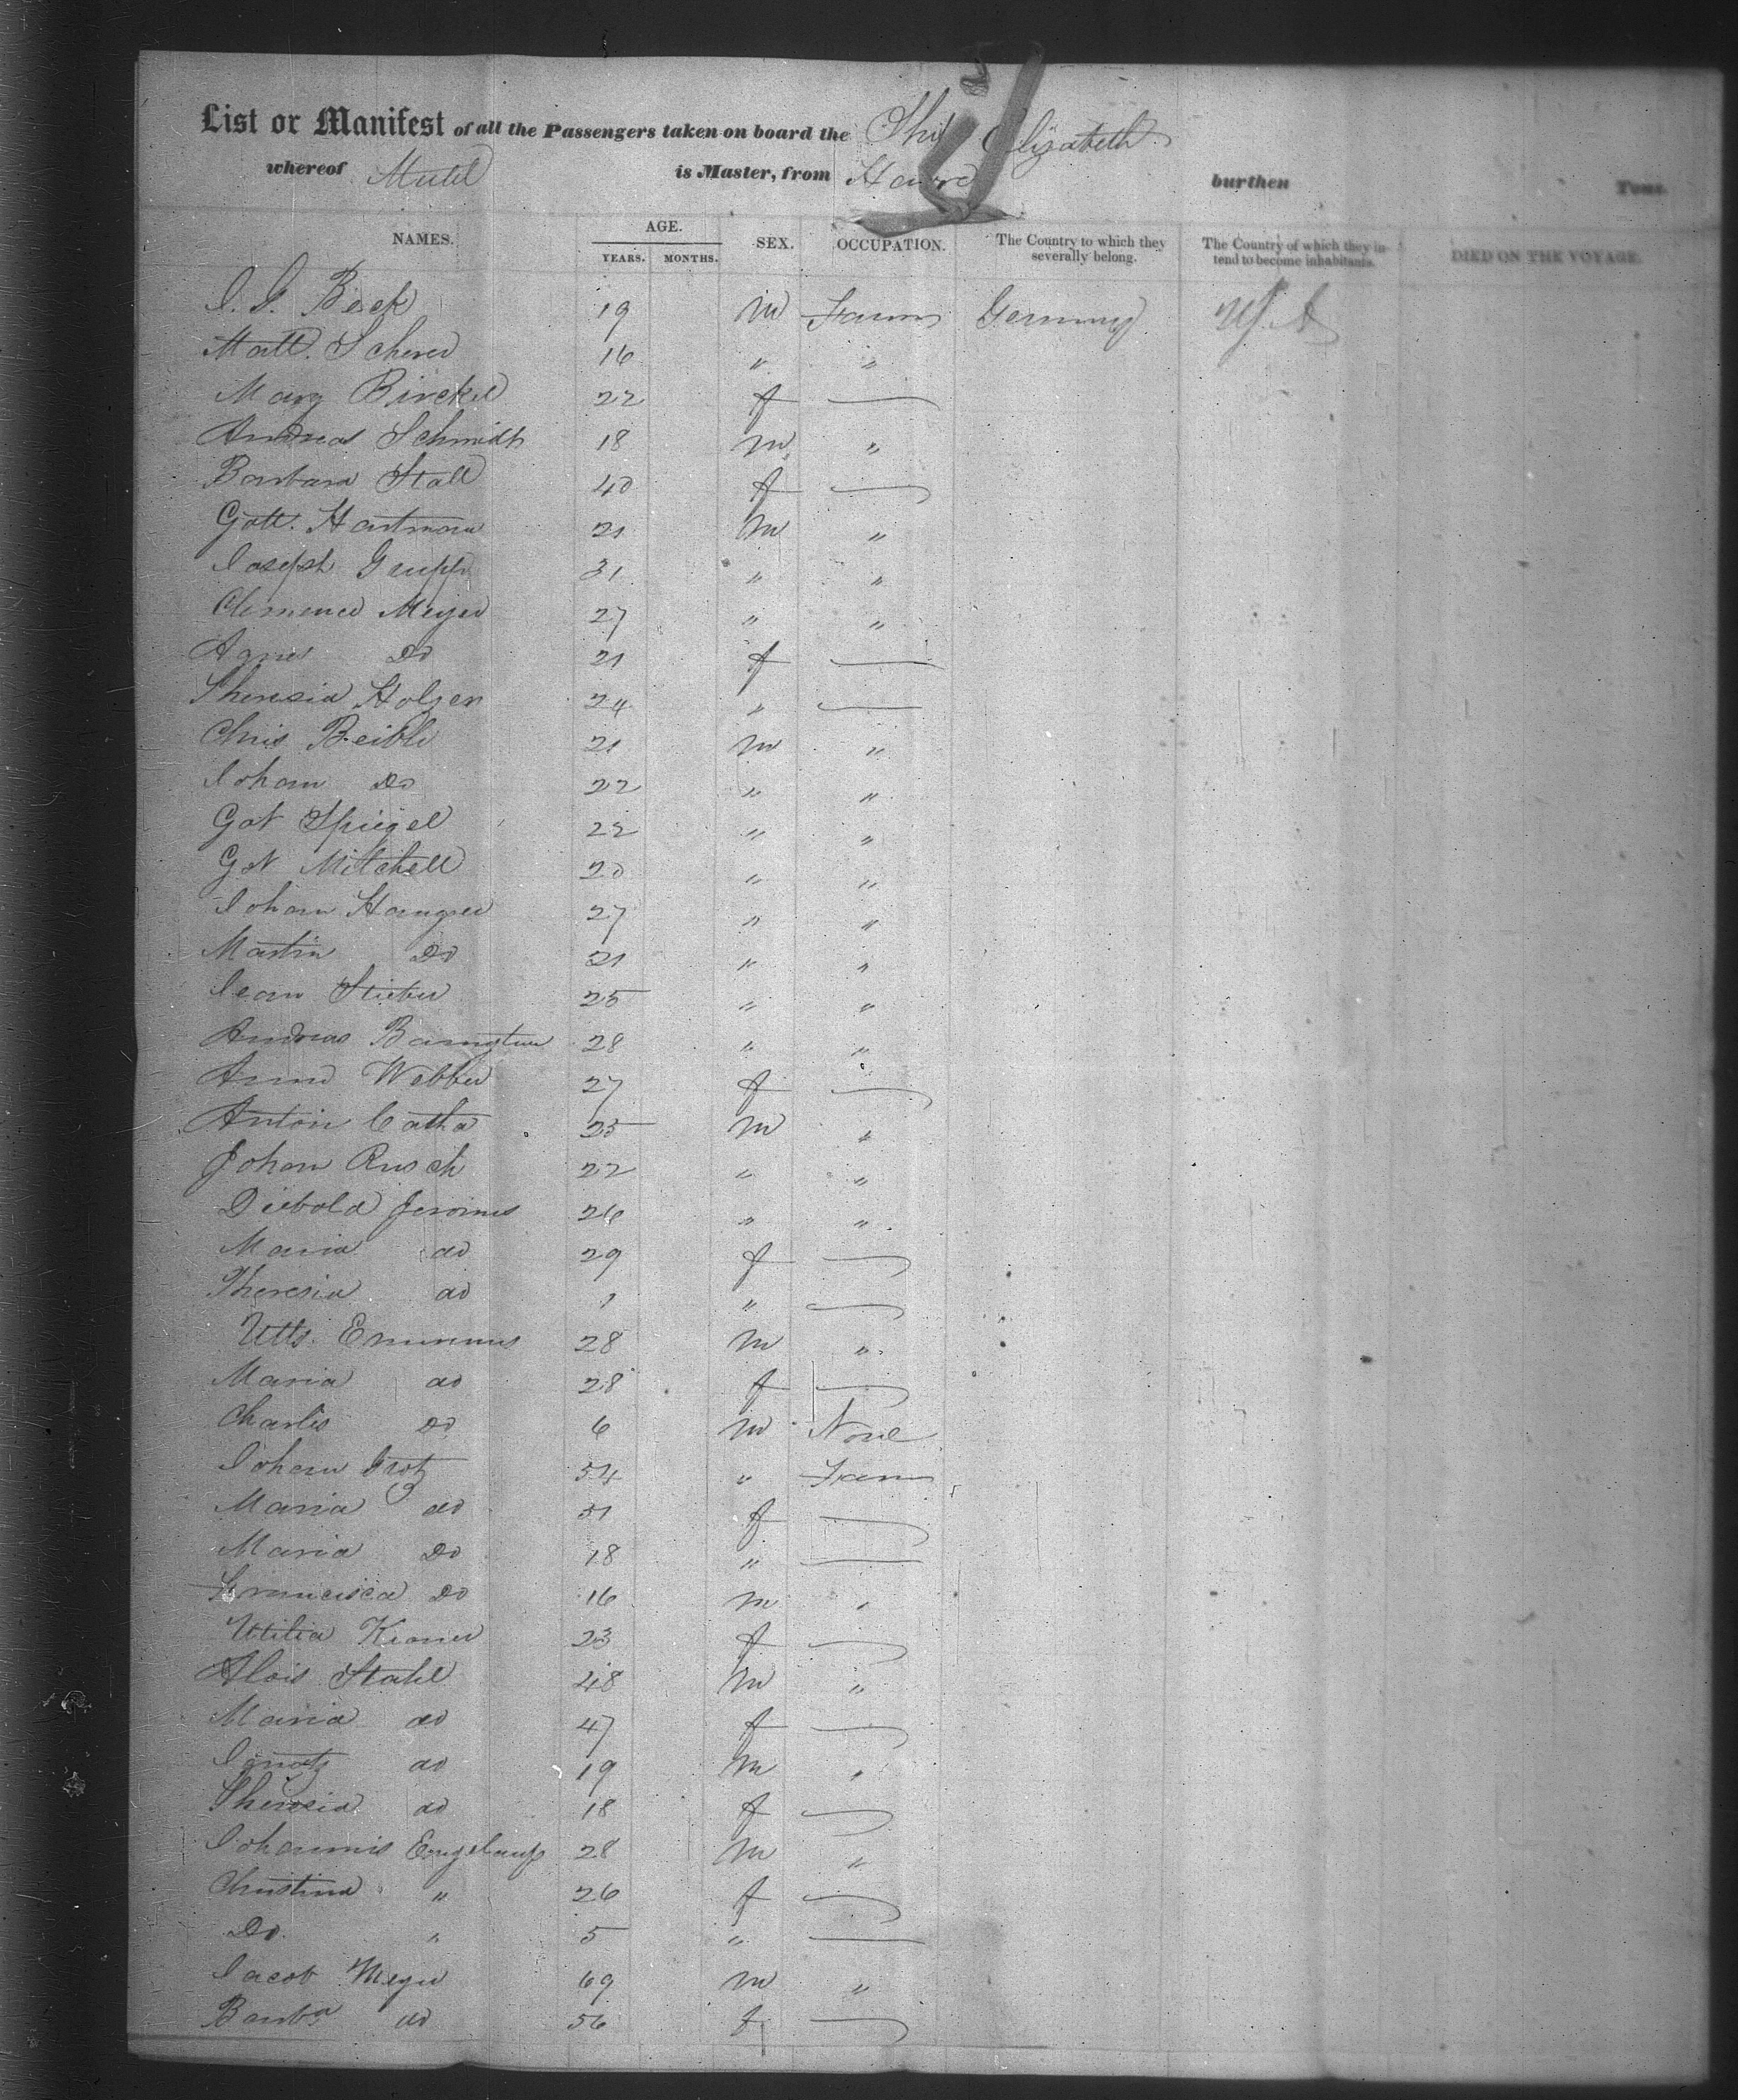 List or Manifest of all the Passengers taken on board the Ship Elizabeth
whereof Mutel is Master, from Havre burthen Tons
NAMES. AGE. SEX. OCCUPATION. The Country to which they severally belong. The Country of which they intend to become inhabitants. DIED ON THE VOYAGE.
YEARS. MONTHS.
I. G. Beck 19 m Farm Germany U.S.A
Matt. Scherer 16 " "
Mary Birckel 22 f —
Andreas Schmidt 18 m "
Barbara Stall 40 f —
Gott. Hartmann 21 m "
Joseph Grupp 31 " "
Clemence Meyer 27 " "
Agnes Do 21 f —
Theresia Holzer 24 " —
Chris Beible 21 m "
Johann Do 22 " "
Got Spiegel 22 " "
Got Mitchell 20 " "
Johann 27 " "
Martin Do 21 " "
Jean Stieber 25 " "
Andreas 28 " "
Anna Webber 27 f —
Anton Catha 25 m "
Johann Rusch 22 " "
Diebold Jeromes 26 " "
Maria do 29 f —
Theresia do 1 " —
28 m "
Maria do 28 f —
Charles Do 6 m None
Johann Grotz 54 " Farm
Maria do 51 f —
Maria Do 18 " —
Francisca Do 16 m "
Utilia 23 f —
Alois Stahl 48 m "
Maria do 47 f —
Ignatz do 19 m "
Theresia do 18 f —
Johannis 28 m "
Christina " 26 f —
Do. " 5 " —
Jacob Meyer 69 m "
Barba do 56 f —